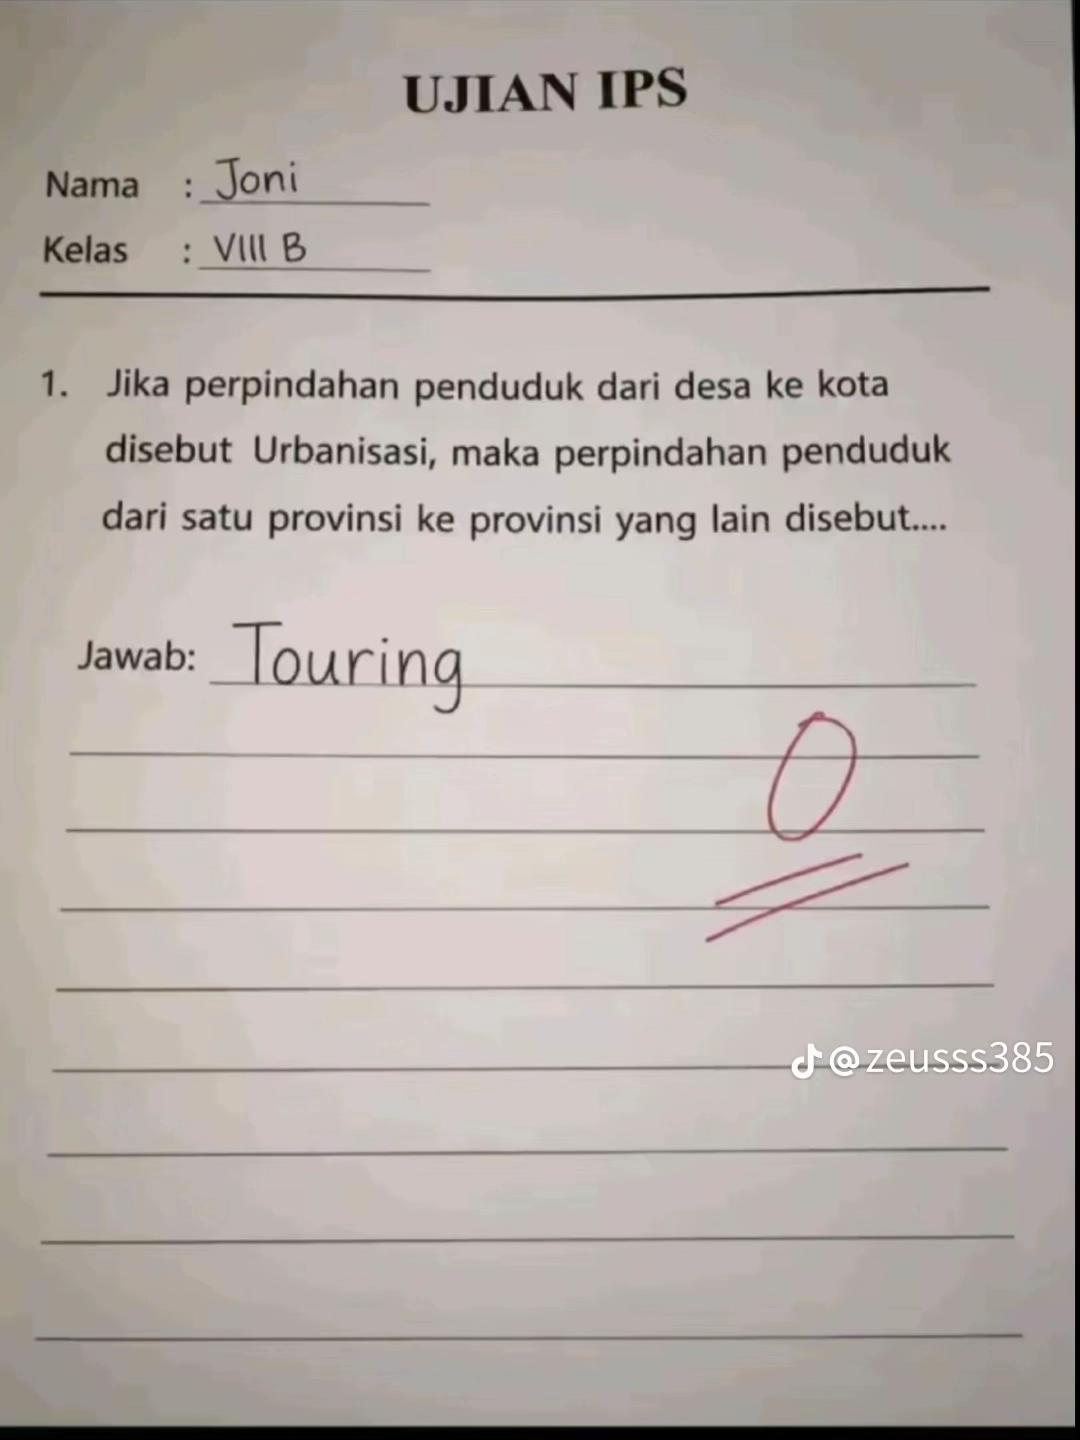 UJIAN IPS
Nama : Joni
Kelas : VIII B
1. Jika perpindahan penduduk dari desa ke kota
disebut Urbanisasi, maka perpindahan penduduk
dari satu provinsi ke provinsi yang lain disebut....
Jawab: Touring
0
@zeusss385